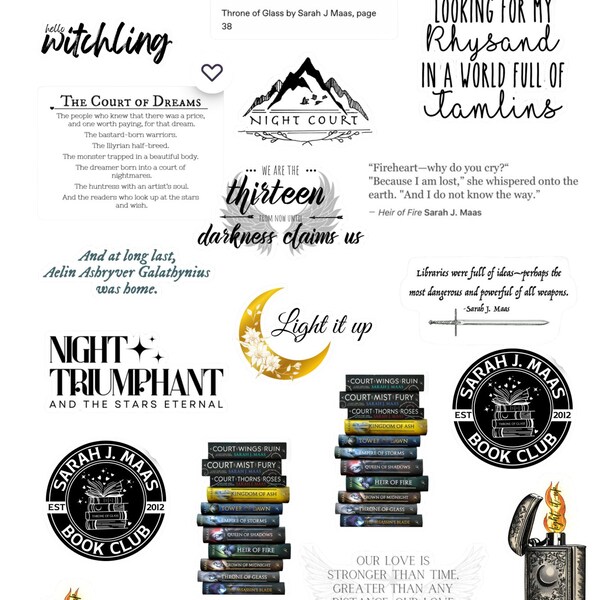 Throne of Glass by Sarah J Maas, page
38
hello
witchling
LOOKING FOR MY
Rhysand
IN A WORLD FULL OF
Tamlins
THE COURT OF DREAMS
The people who knew that there was a price,
and one worth paying, for that dream.
The bastard-born warriors.
The Illyrian half-breed.
The monster trapped in a beautiful body.
The dreamer born into a court of
nightmares.
The huntress with an artist's soul.
And the readers who look up at the stars
and wish.
NIGHT COURT
WE ARE THE
thirteen
FROM NOW UNTIL
darkness claims us
"Fireheart—why do you cry?"
"Because I am lost," she whispered onto the
earth. "And I do not know the way."
— Heir of Fire Sarah J. Maas
And at long last,
Aelin Ashryver Galathynius
was home.
Libraries were full of ideas—perhaps the
most dangerous and powerful of all weapons.
-Sarah J. Maas
Light it up
NIGHT
TRIUMPHANT
AND THE STARS ETERNAL
SARAH J. MAAS
EST 2012
THRONE OF GLASS
BOOK CLUB
COURT WINGS RUIN
COURT MIST FURY
COURT THORNS ROSES
KINGDOM OF ASH
TOWER DAWN
EMPIRE OF STORMS
QUEEN OF SHADOWS
HEIR OF FIRE
CROWN OF MIDNIGHT
THRONE OF GLASS
ASSASSIN'S BLADE
SARAH J. MAAS
EST 2012
THRONE OF GLASS
BOOK CLUB
COURT WINGS RUIN
COURT MIST FURY
COURT THORNS ROSES
KINGDOM OF ASH
TOWER DAWN
EMPIRE OF STORMS
QUEEN OF SHADOWS
HEIR OF FIRE
CROWN OF MIDNIGHT
THRONE OF GLASS
ASSASSIN'S BLADE
OUR LOVE IS
STRONGER THAN TIME,
GREATER THAN ANY
DISTANCE. OUR LOVE